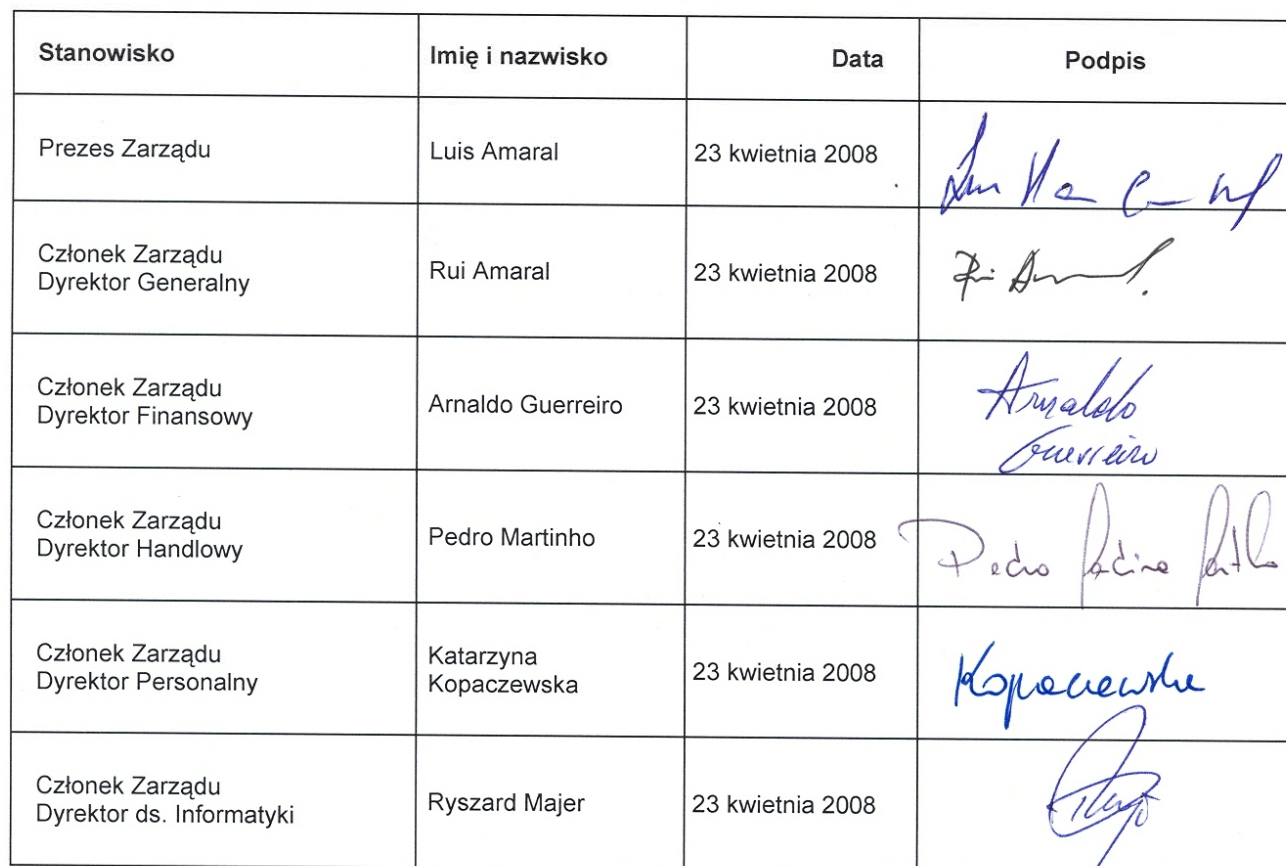 Stanowisko Imię i nazwisko Data Podpis
Prezes Zarządu Luis Amaral 23 kwietnia 2008
Członek Zarządu
Dyrektor Generalny Rui Amaral 23 kwietnia 2008
Członek Zarządu
Dyrektor Finansowy Arnaldo Guerreiro 23 kwietnia 2008 Arnaldo
Guerreiro
Członek Zarządu
Dyrektor Handlowy Pedro Martinho 23 kwietnia 2008 Pedro
Członek Zarządu
Dyrektor Personalny Katarzyna
Kopaczewska 23 kwietnia 2008 Kopaczewska
Członek Zarządu
Dyrektor ds. Informatyki Ryszard Majer 23 kwietnia 2008